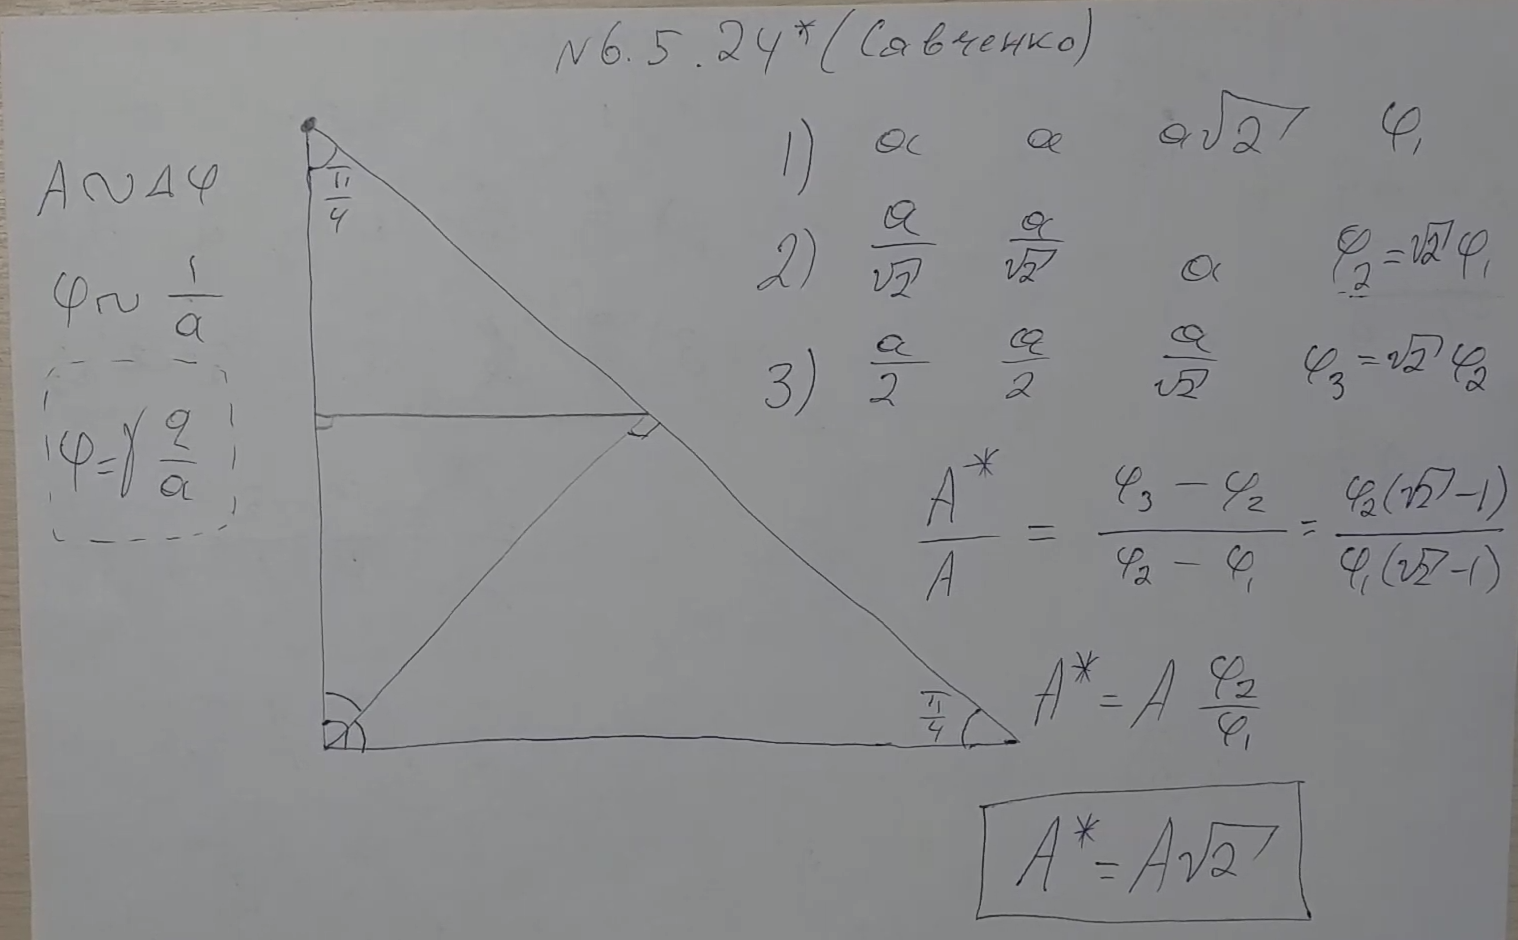 N6.5.24* (Савченко)
A ~ Δφ
φ ~ 1/a
φ = γ q/a
π/4
π/4
1) a a a√2 φ₁
2) a/√2 a/√2 a φ₂ = √2 φ₁
3) a/2 a/2 a/√2 φ₃ = √2 φ₂
A*/A = (φ₃ − φ₂)/(φ₂ − φ₁) = φ₂(√2 − 1)/φ₁(√2 − 1)
A* = A φ₂/φ₁
A* = A√2